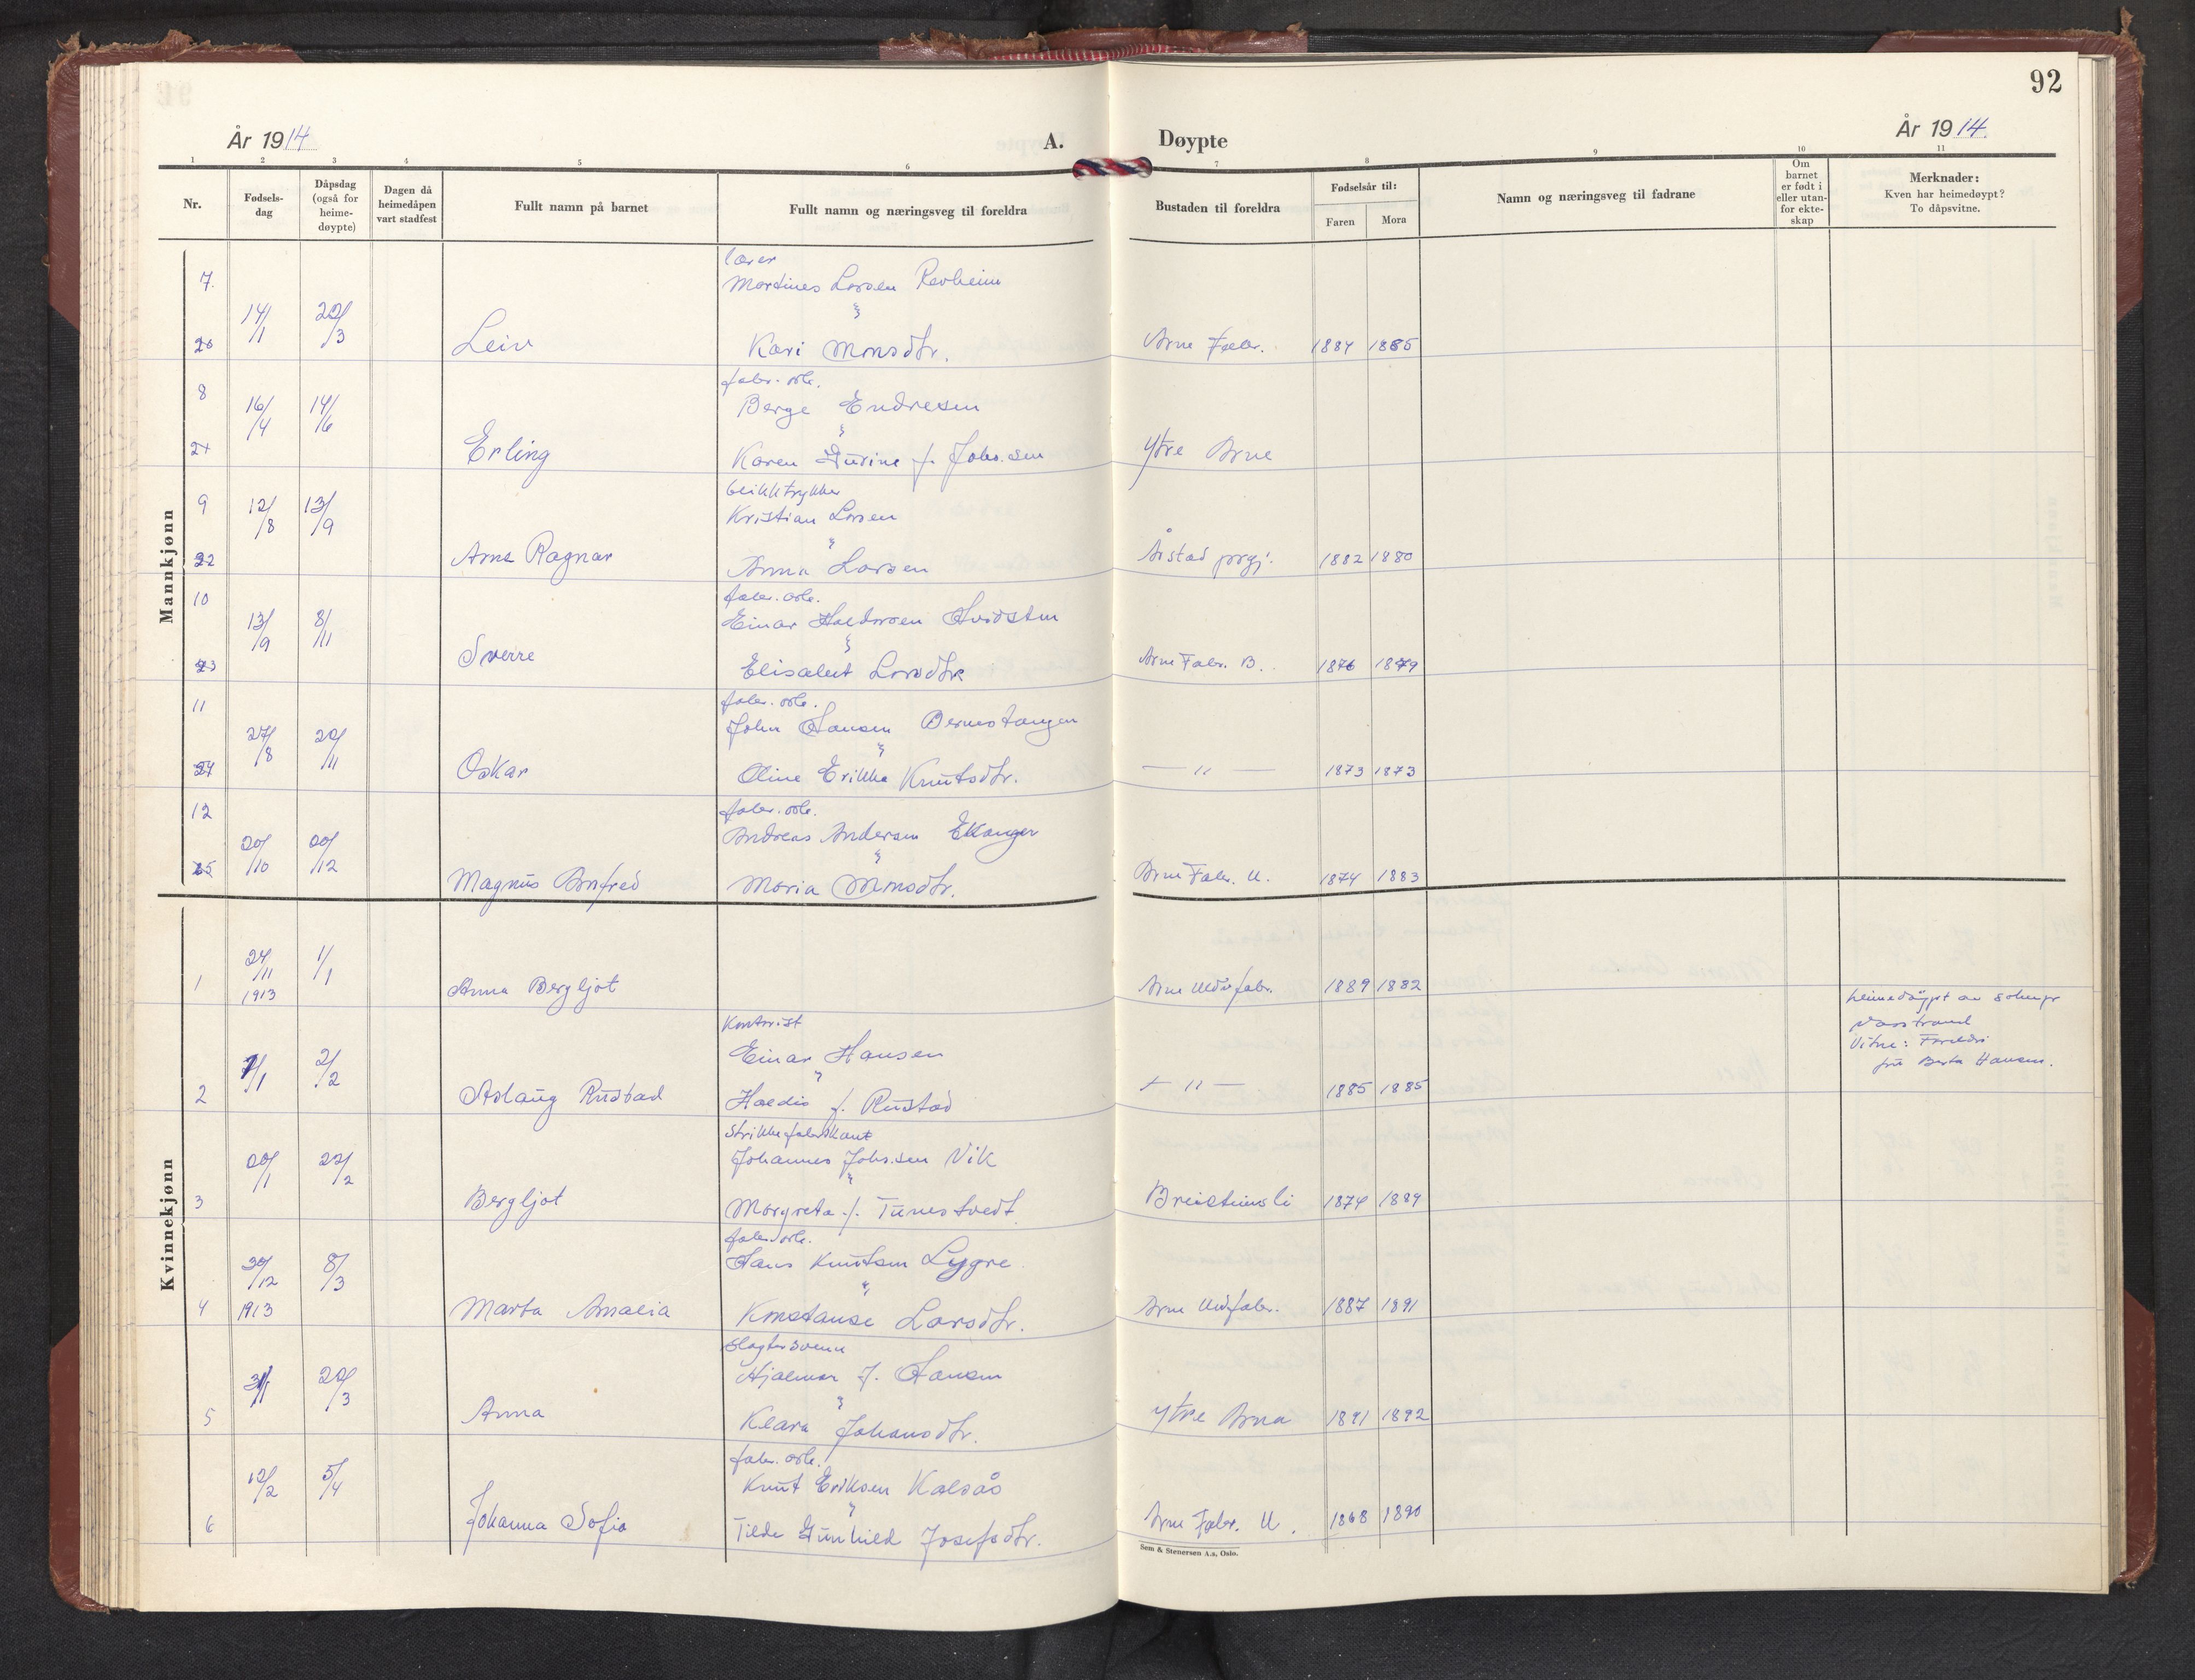 92
År 1914
A.
Døypte
År 1914.
1 2 3 4 5 6 7 8 9 10 11
Nr.
Fødsels-
dag
Dåpsdag
(også for
heime-
døypte)
Dagen då
heimedåpen
vart stadfest
Fullt namn på barnet
Fullt namn og næringsveg til foreldra
Bustaden til foreldra
Fødselsår til:
Faren Mora
Namn og næringsveg til fadrane
Om
barnet
er født i
eller utan-
for ekte-
skap
Merknader:
Kven har heimedøypt?
To dåpsvitne.
Mankjønn
lærer
7. Martines Larsen Revheim
14/1 22/3
20 Leiv Kari Monsdtr. Arne Fabr. 1884 1885
fabr. arb.
8 16/4 14/6 Berge Endresen
21 Erling Karen Gurine f. Johs.sen Ytre Arne
blikktrykker
9 12/8 13/9 Kristian Larsen
22 Arne Ragnar Anna Larsen Årstad prgj. 1882 1880
10 fabr. arb.
13/9 8/11 Einar Haldorsen
23 Sverre Elisabet Larsdtr Arne Fabr. B. 1876 1879
11 fabr. arb.
27/8 29/11 John Hansen Bernestangen
24 Oskar Oline Erikka Knutsdtr. — " — 1873 1873
12 fabr. arb.
20/10 20/12 Andreas Andersen Ekanger
25 Magnus Anfred Maria Monsdtr. Arne Fabr. U. 1874 1883
Kvinnekjønn
24/11 1/1
1 1913 Anna Bergljot Arne Nedrefabr. 1889 1882
Kontorist
1/1 2/2 Einar Hansen
2 Aslaug Rustad Haldis f. Rustad — " — 1885 1885
heimedøypt av soknepr
Vitne: Foreldri
fru Berta Hansen.
Strikkefabrikant
20/1 22/2 Johannes Johs.sen Vik
3 Bergljot Margreta f. Tunestvedt Breisteinsli 1874 1889
fabr. arb.
30/12 8/3 Hans Knutsen Lygre
4 1913 Marta Amalia Konstanse Larsdtr. Arne Nedfabr. 1887 1891
Slagtersvenn
31/1 29/3 Hjalmar J. Hansen
5 Anna Klara Johansdtr. Ytre Arna 1891 1892
fabr. arb.
12/2 5/4 Knut Eriksen Kalsås
6 Johanna Sofia Tilde Gunhild Josefsdtr. Arne Fabr. U. 1868 1890
Sem & Stenersen A.s, Oslo.